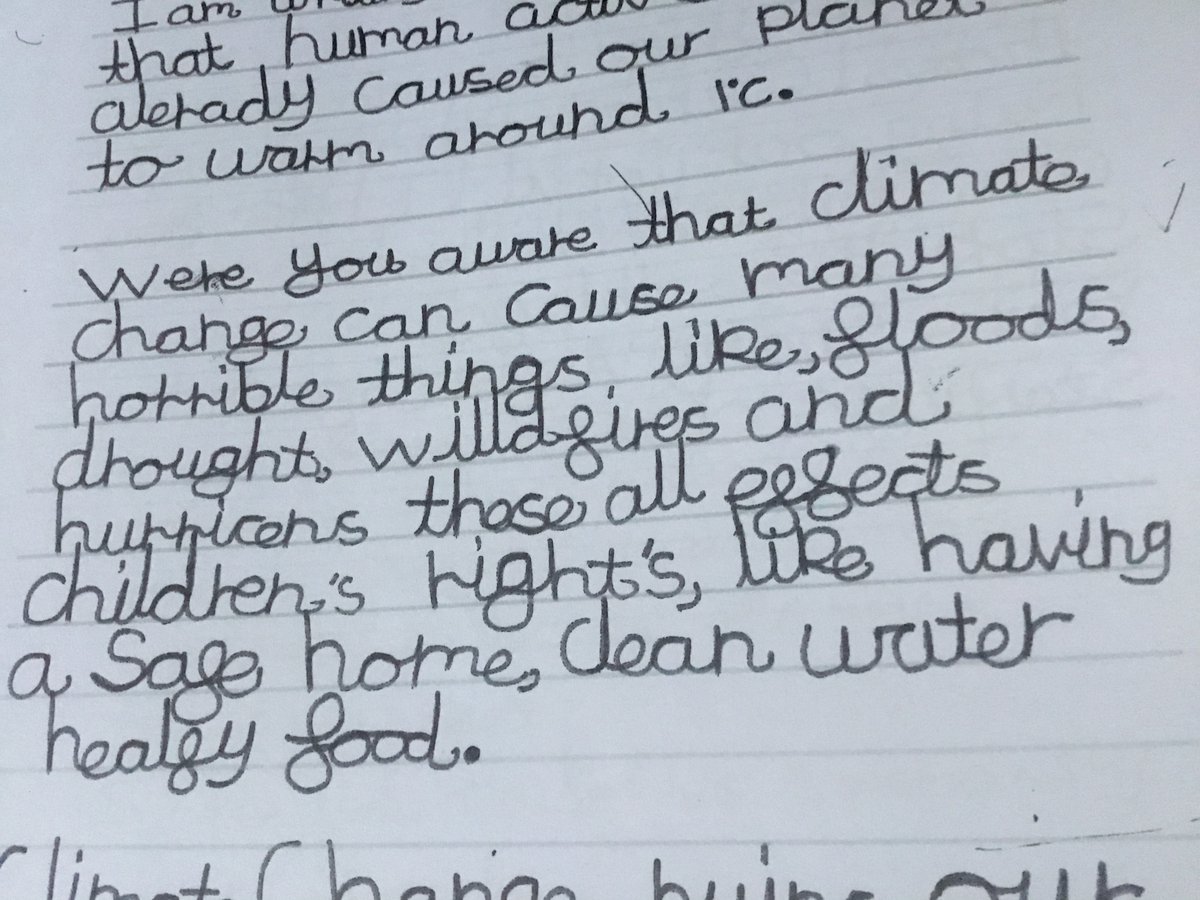 I am
that human
alerady caused our planet
to warm around 1°c.
Were you aware that climate
change can cause many
horrible things, like, floods,
drought, willdfires and
hurricens those all effects
children's right's, like having
a safe home, clean water
healfy food.
Change our